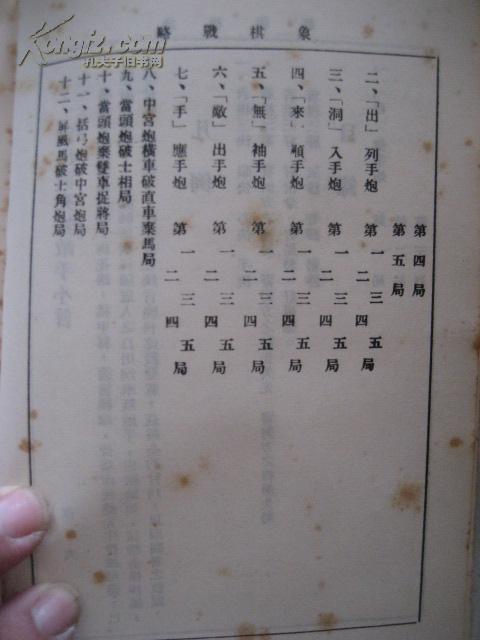 象棋戰略
第四局
第五局
二、「出」列手炮 第一二三四五局
三、「洞」入手炮 第一二三四五局
四、「來」順手炮 第一二三四五局
五、「無」袖手炮 第一二三四五局
六、「敵」出手炮 第一二三四五局
七、「手」應手炮 第一二三四五局
八、中宮炮橫車破直車棄馬局
九、當頭炮破士相局
十、當頭炮棄雙車捉將局
十一、括弓炮破中宮炮局
十二、屏風馬破士角炮局
Kongfz.com
孔夫子旧书网